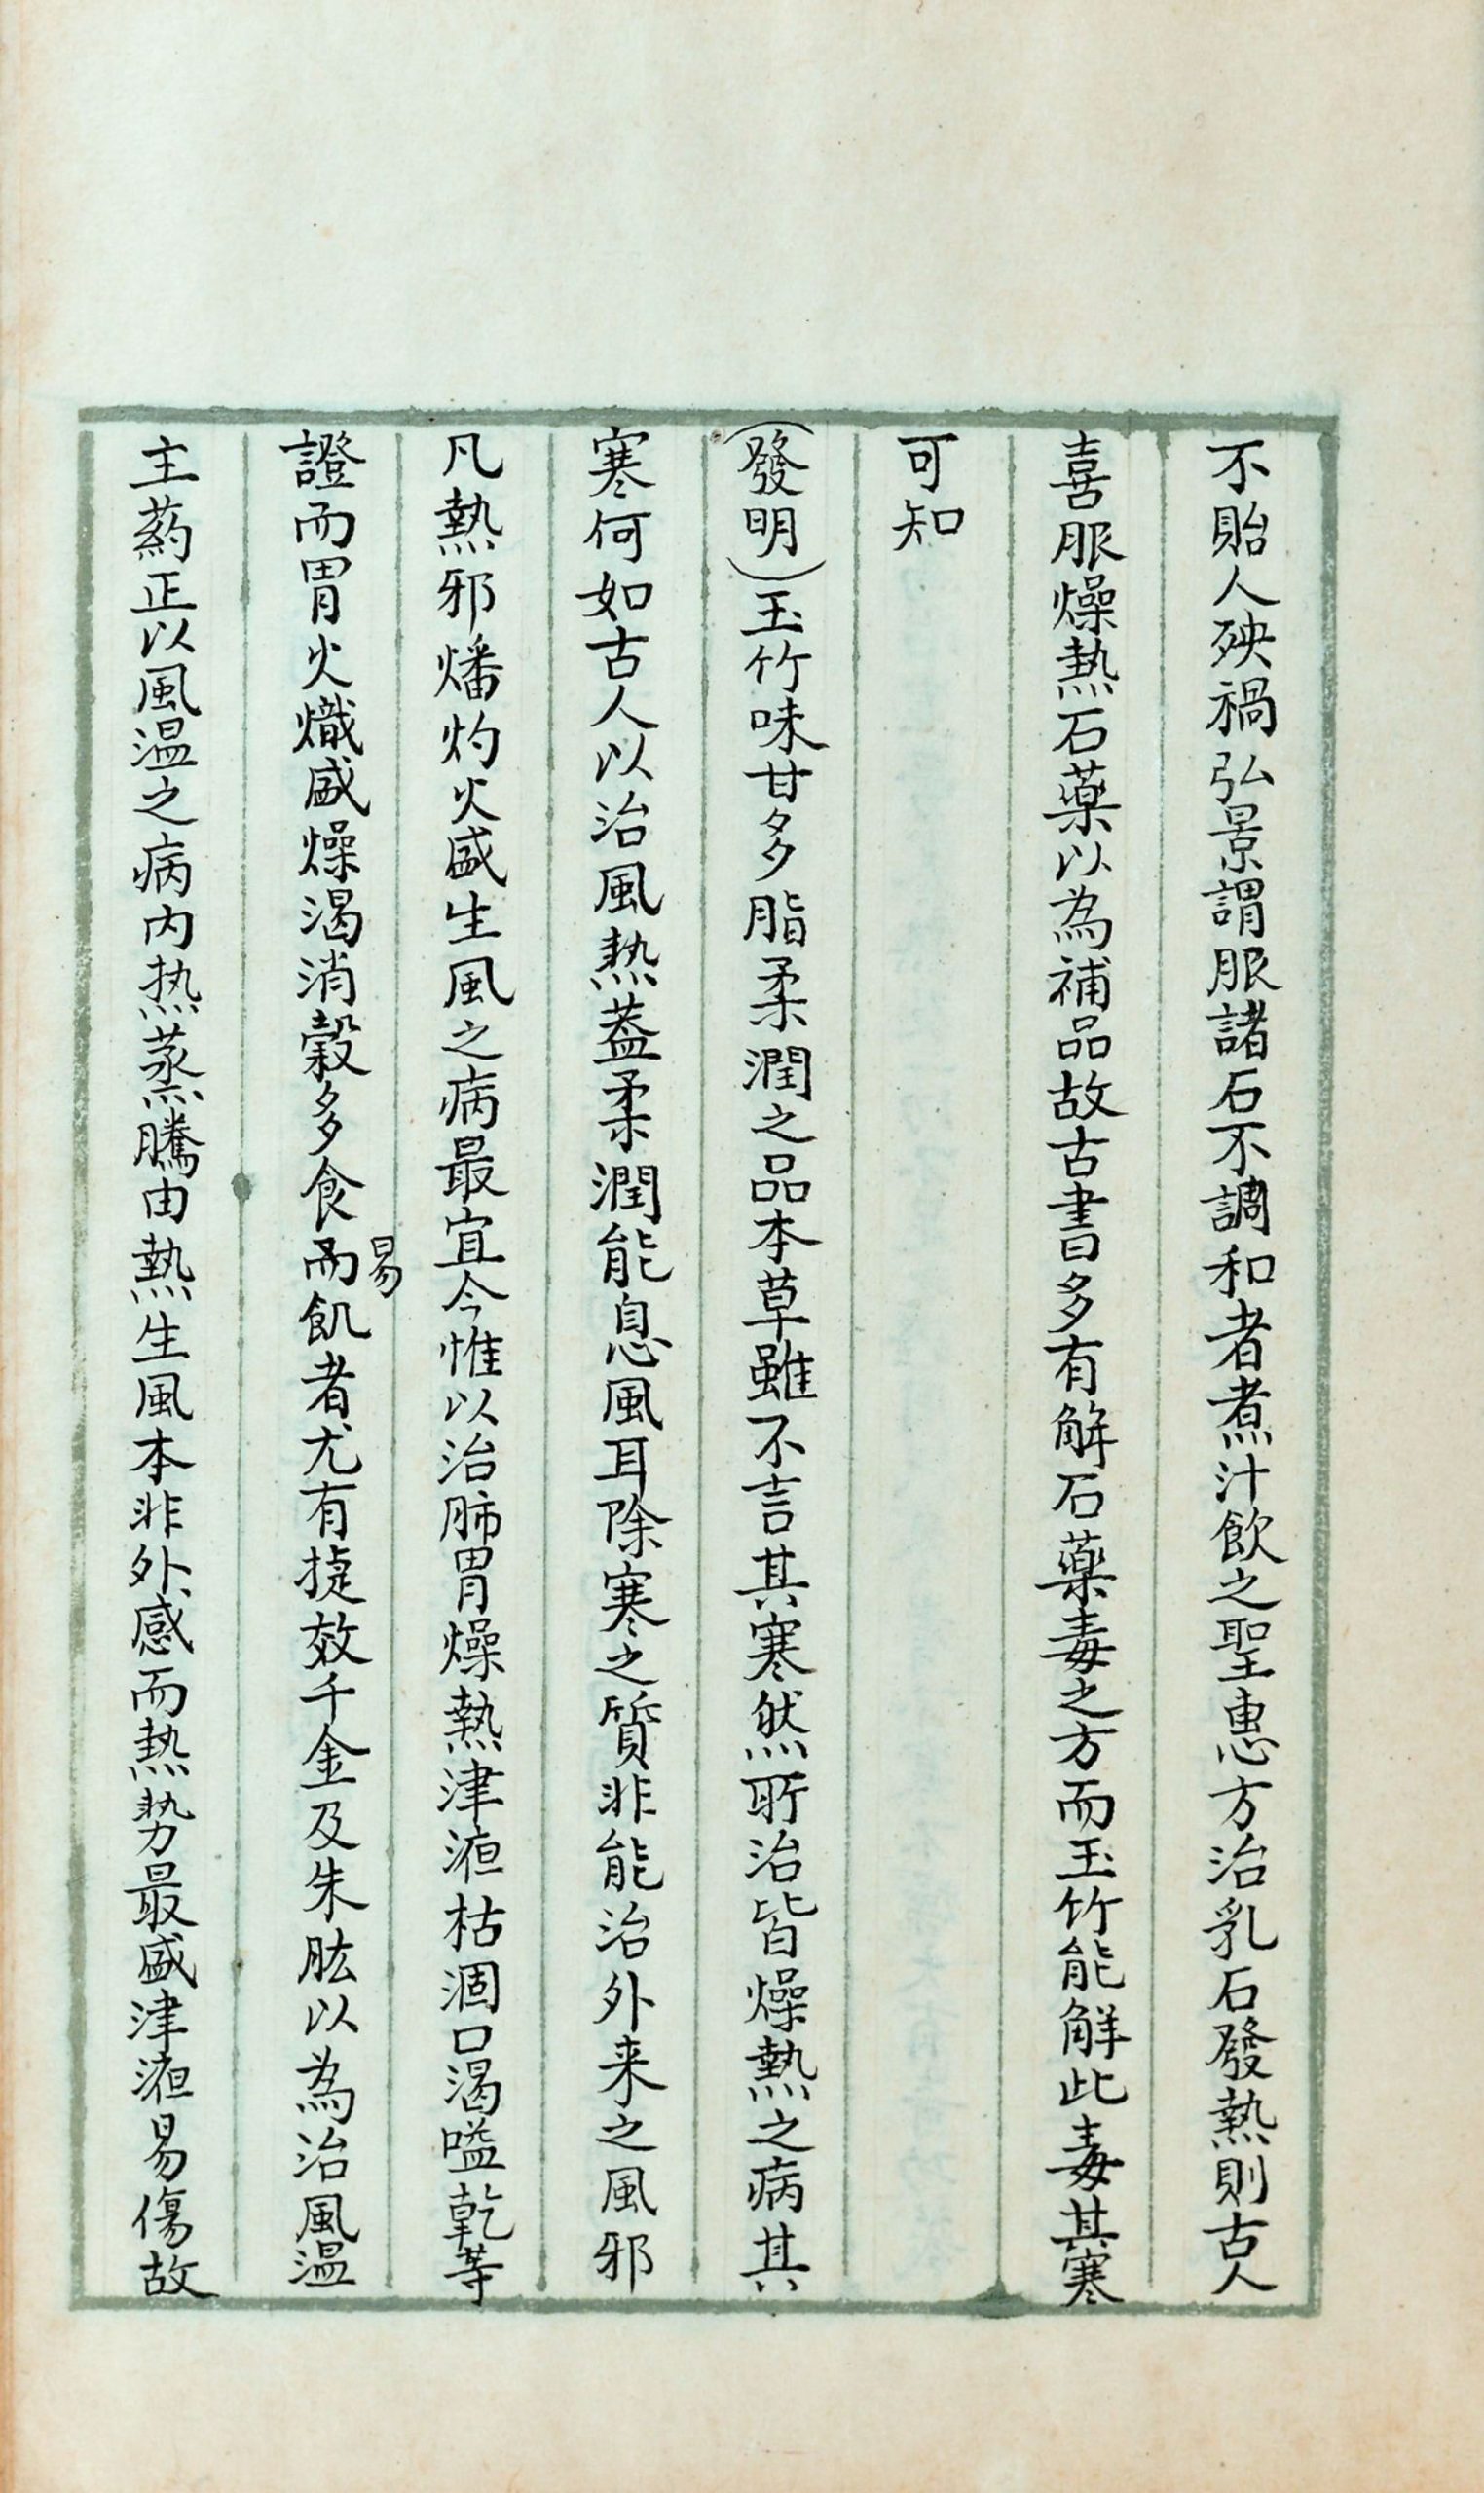 不貽人殃禍弘景謂服諸石不調和者煮汁飲之聖惠方治乳石發熱則古人
喜服燥熱石藥以為補品故古書多有解石藥毒之方而玉竹能解此毒其寒
可知
(發明)玉竹味甘多脂柔潤之品本草雖不言其寒然所治皆燥熱之病其
寒何如古人以治風熱蓋柔潤能息風耳除寒之質非能治外来之風邪
凡熱邪燔灼火盛生風之病最宜今惟以治肺胃燥熱津液枯涸口渴嗌乾等
證而胃火熾盛燥渴消穀多食而易飢者尤有捷效千金及朱肱以為治風温
主葯正以風温之病内热蒸騰由熱生風本非外感而熱势最盛津液易傷故